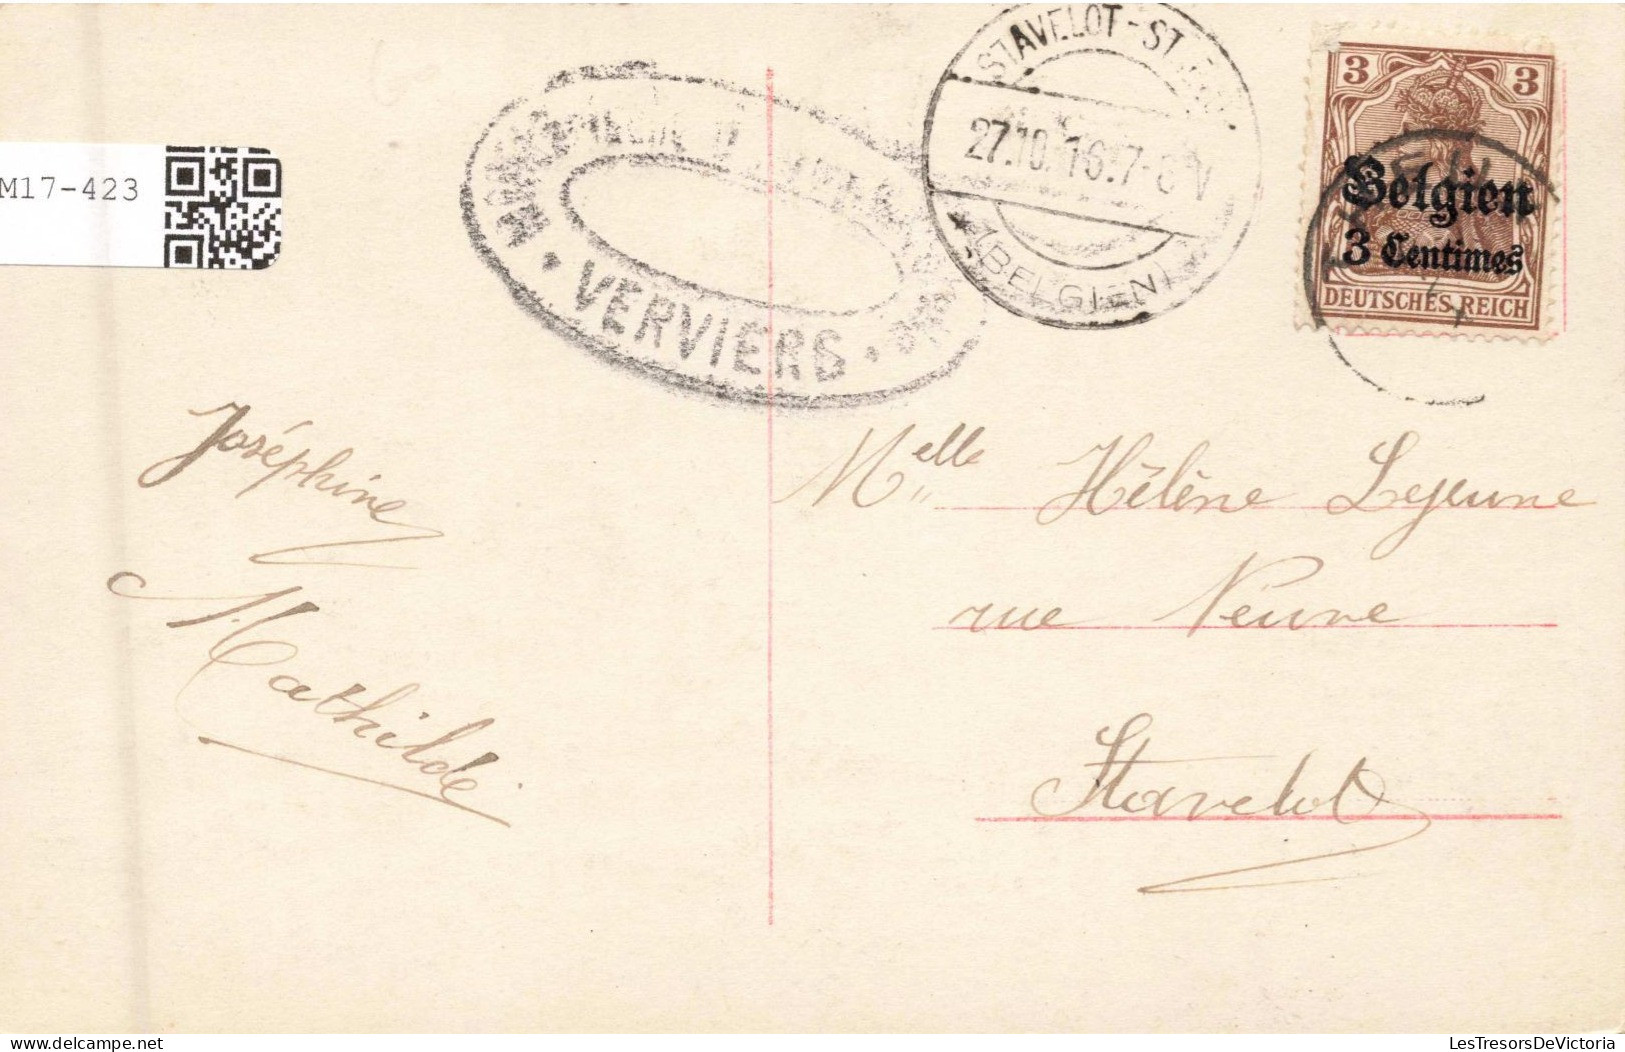 STAVELOT-ST
27.10.16.7-8V
★ (BELGIEN)
3 3
Belgien
3 Centimes
DEUTSCHES REICH
M17-423
VERVIERS
Joséphine
Mathilde
Melle Hélène Lejeune
rue Neuve
Stavelot
LesTresorsDeVictoria